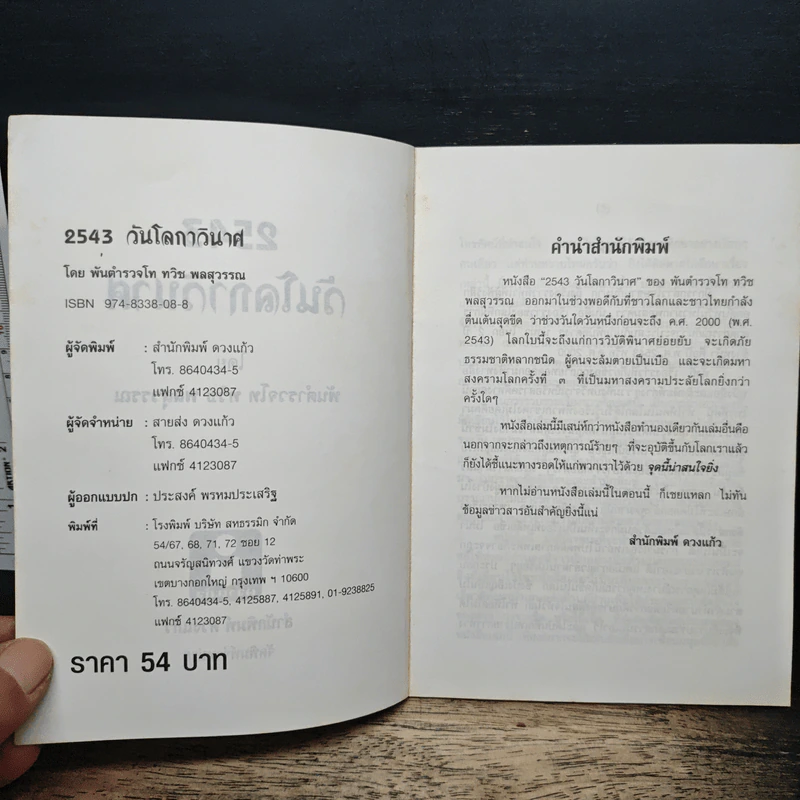 2543 วันโลกาวินาศ
โดย พันตำรวจโท ทวิช พลสุวรรณ
ISBN 974-8338-08-8
ผู้จัดพิมพ์ : สำนักพิมพ์ ดวงแก้ว
โทร. 8640434-5
แฟกซ์ 4123087
ผู้จัดจำหน่าย : สายส่ง ดวงแก้ว
โทร. 8640434-5
แฟกซ์ 4123087
ผู้ออกแบบปก : ประสงค์ พรหมประเสริฐ
พิมพ์ที่ : โรงพิมพ์ บริษัท สหธรรมิก จำกัด
54/67, 68, 71, 72 ซอย 12
ถนนจรัญสนิทวงศ์ แขวงวัดท่าพระ
เขตบางกอกใหญ่ กรุงเทพ ฯ 10600
โทร. 8640434-5, 4125887, 4125891, 01-9238825
แฟกซ์ 4123087
ราคา 54 บาท
คำนำสำนักพิมพ์
หนังสือ "2543 วันโลกาวินาศ" ของ พันตำรวจโท ทวิช
พลสุวรรณ ออกมาในช่วงพอดีกับที่ชาวโลกและชาวไทยกำลัง
ตื่นเต้นสุดขีด ว่าช่วงวันใดวันหนึ่งก่อนจะถึง ค.ศ. 2000 (พ.ศ.
2543) โลกใบนี้จะถึงแก่การวิบัติพินาศย่อยยับ จะเกิดภัย
ธรรมชาติหลากชนิด ผู้คนจะล้มตายเป็นเบือ และจะเกิดมหา
สงครามโลกครั้งที่ ๓ ที่เป็นมหาสงครามประลัยโลกยิ่งกว่า
ครั้งใดๆ
หนังสือเล่มนี้มีเสน่ห์กว่าหนังสือทำนองเดียวกันเล่มอื่นคือ
นอกจากจะกล่าวถึงเหตุการณ์ร้ายๆ ที่จะอุบัติขึ้นกับโลกเราแล้ว
ก็ยังได้ชี้แนะทางรอดให้แก่พวกเราไว้ด้วย จุดนี้น่าสนใจยิ่ง
หากไม่อ่านหนังสือเล่มนี้ในตอนนี้ ก็เชยแหลก ไม่ทัน
ข้อมูลข่าวสารอันสำคัญยิ่งนี้แน่
สำนักพิมพ์ ดวงแก้ว